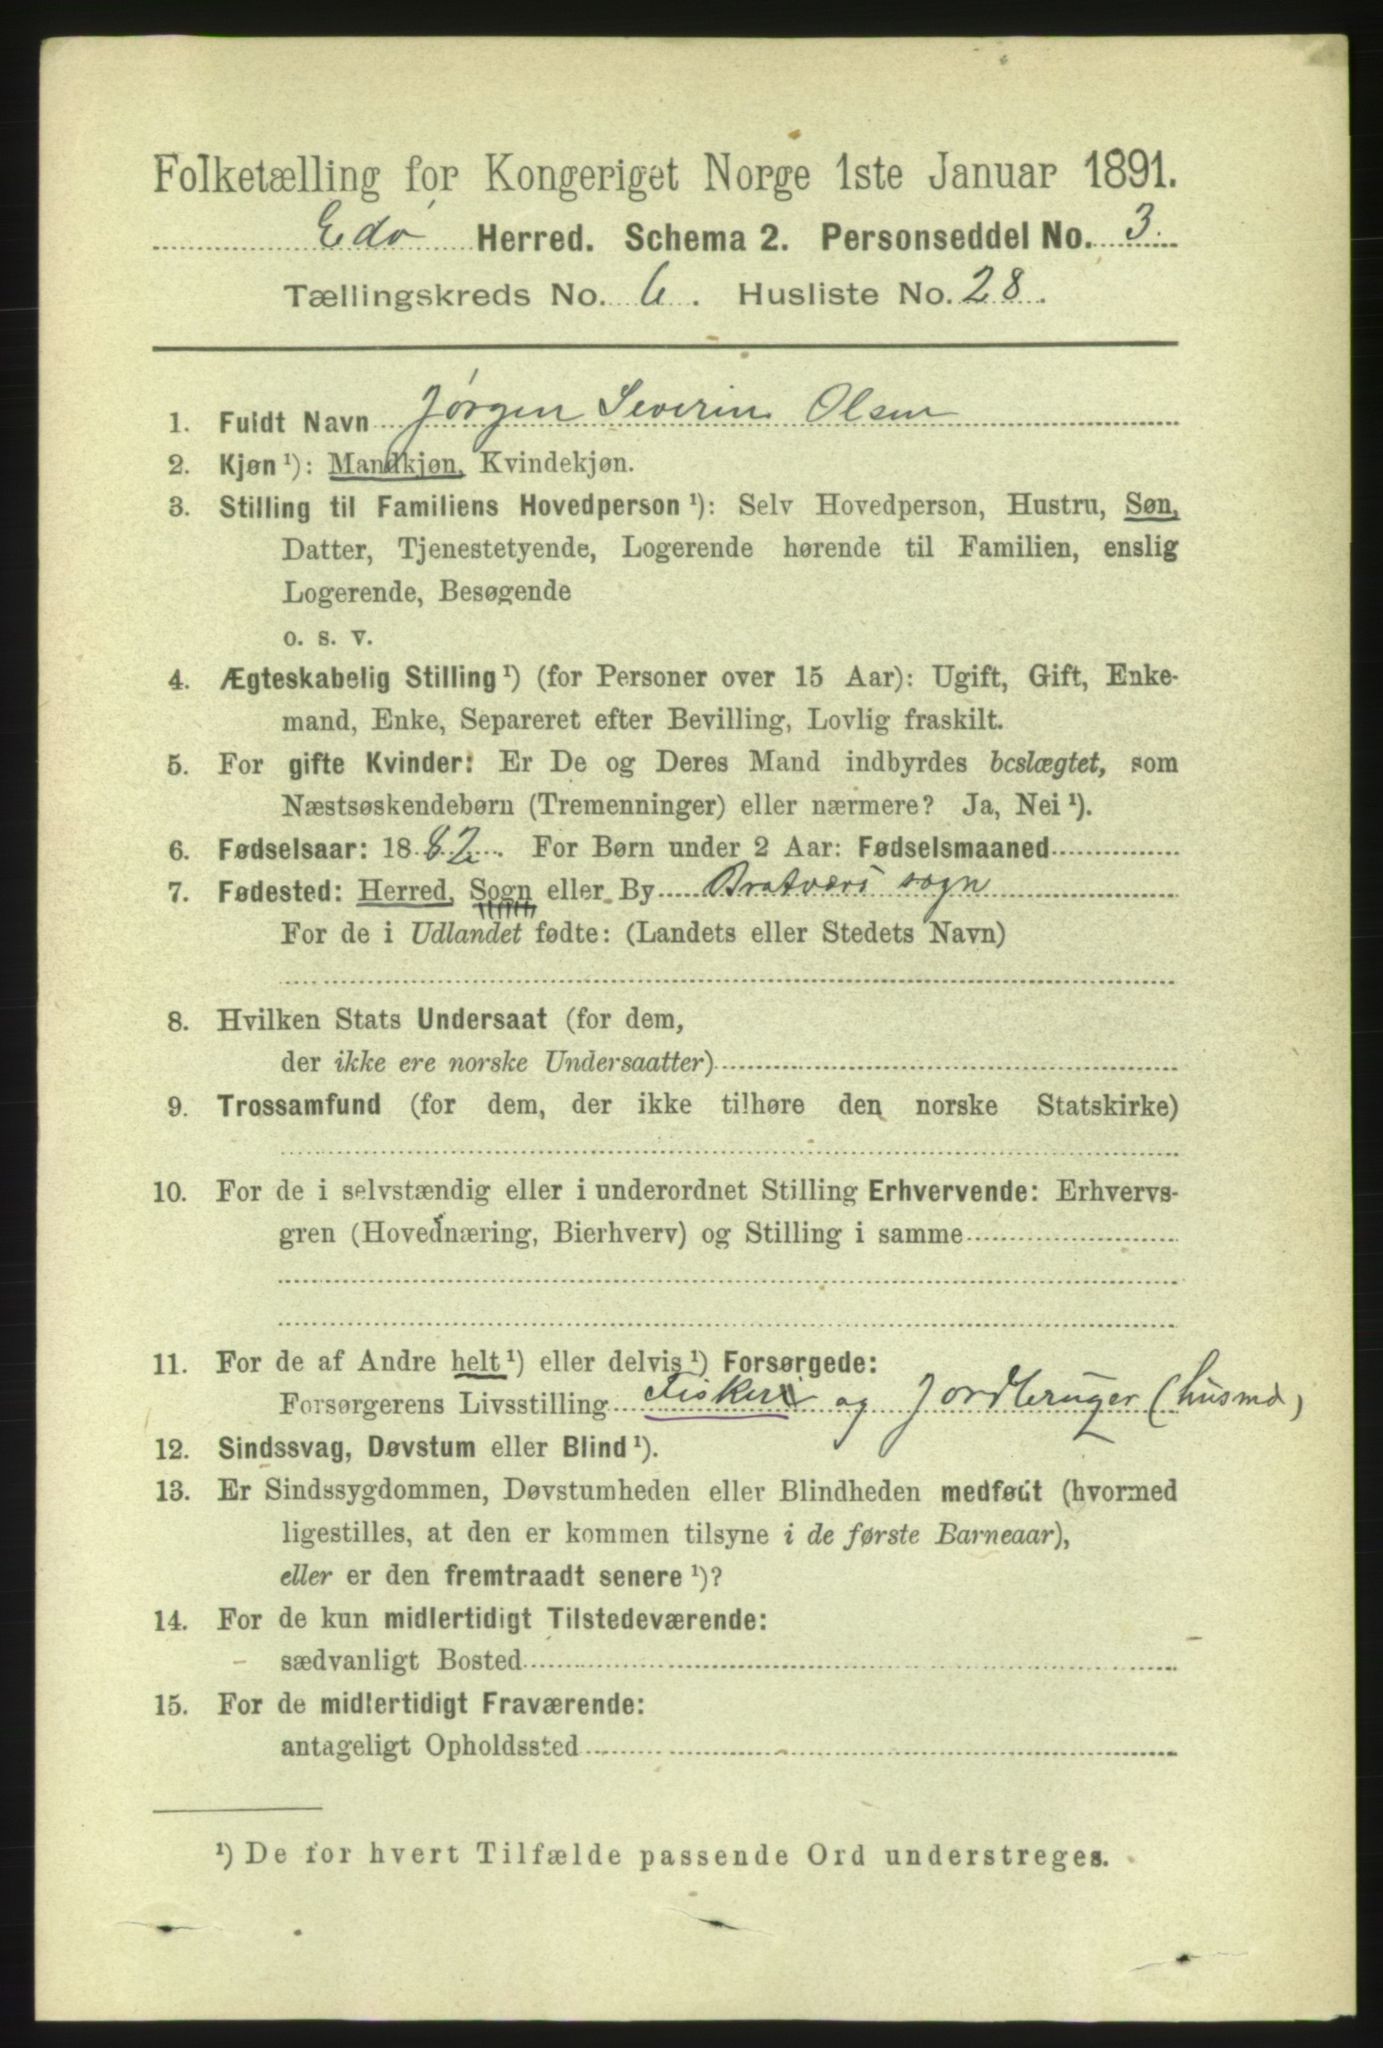 Folketælling for Kongeriget Norge 1ste Januar 1891.
Edø Herred. Schema 2. Personseddel No. 3.
Tællingskreds No. 6. Husliste No. 28.
1. Fuldt Navn Jørgen Severin Olsen
2. Kjøn ¹): Mandkjøn, Kvindekjøn.
3. Stilling til Familiens Hovedperson ¹): Selv Hovedperson, Hustru, Søn,
Datter, Tjenestetyende, Logerende hørende til Familien, enslig
Logerende, Besøgende
o. s. v.
4. Ægteskabelig Stilling ¹) (for Personer over 15 Aar): Ugift, Gift, Enke-
mand, Enke, Separeret efter Bevilling, Lovlig fraskilt.
5. For gifte Kvinder: Er De og Deres Mand indbyrdes beslægtet, som
Næstsøskendebørn (Tremenninger) eller nærmere? Ja, Nei ¹).
6. Fødselsaar: 1882. For Børn under 2 Aar: Fødselsmaaned
7. Fødested: Herred, Sogn eller By Bratvers sogn
For de i Udlandet fødte: (Landets eller Stedets Navn)
8. Hvilken Stats Undersaat (for dem,
der ikke ere norske Undersaatter)
9. Trossamfund (for dem, der ikke tilhøre den norske Statskirke)
10. For de i selvstændig eller i underordnet Stilling Erhvervende: Erhvervs-
gren (Hovednæring, Bierhverv) og Stilling i samme
11. For de af Andre helt ¹) eller delvis ¹) Forsørgede:
Forsørgerens Livsstilling Fisker og Jordbruger (husmd)
12. Sindssvag, Døvstum eller Blind ¹).
13. Er Sindssygdommen, Døvstumheden eller Blindheden medfødt (hvormed
ligestilles, at den er kommen tilsyne i de første Barneaar),
eller er den fremtraadt senere ¹)?
14. For de kun midlertidigt Tilstedeværende:
sædvanligt Bosted
15. For de midlertidigt Fraværende:
antageligt Opholdssted
¹) De for hvert Tilfælde passende Ord understreges.